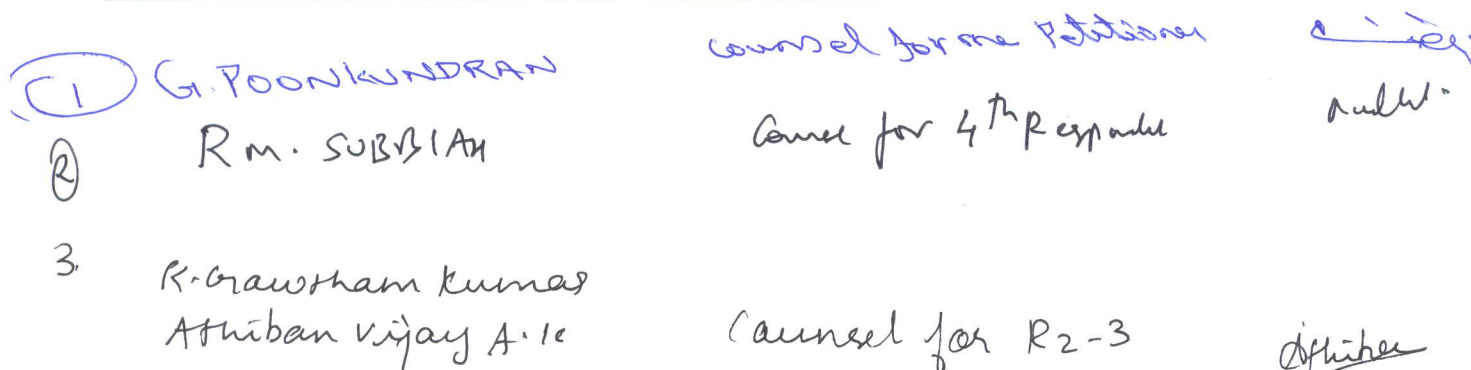 1 G. POONKUNDRAN counsel for the Petitioner
2 RM. SUBBIAH Counsel for 4th Respondent
3. R. Gawtham Kumar
Athiban Vijay A.K Counsel for R2-3 Athiban